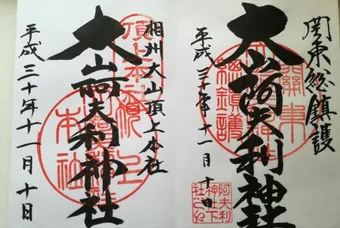 関東総鎮護
大山阿夫利神社
平成三十年十一月十日
阿夫利
神社下
社之印
相州大山頂上本社
大山阿夫利神社
平成三十年十一月十日